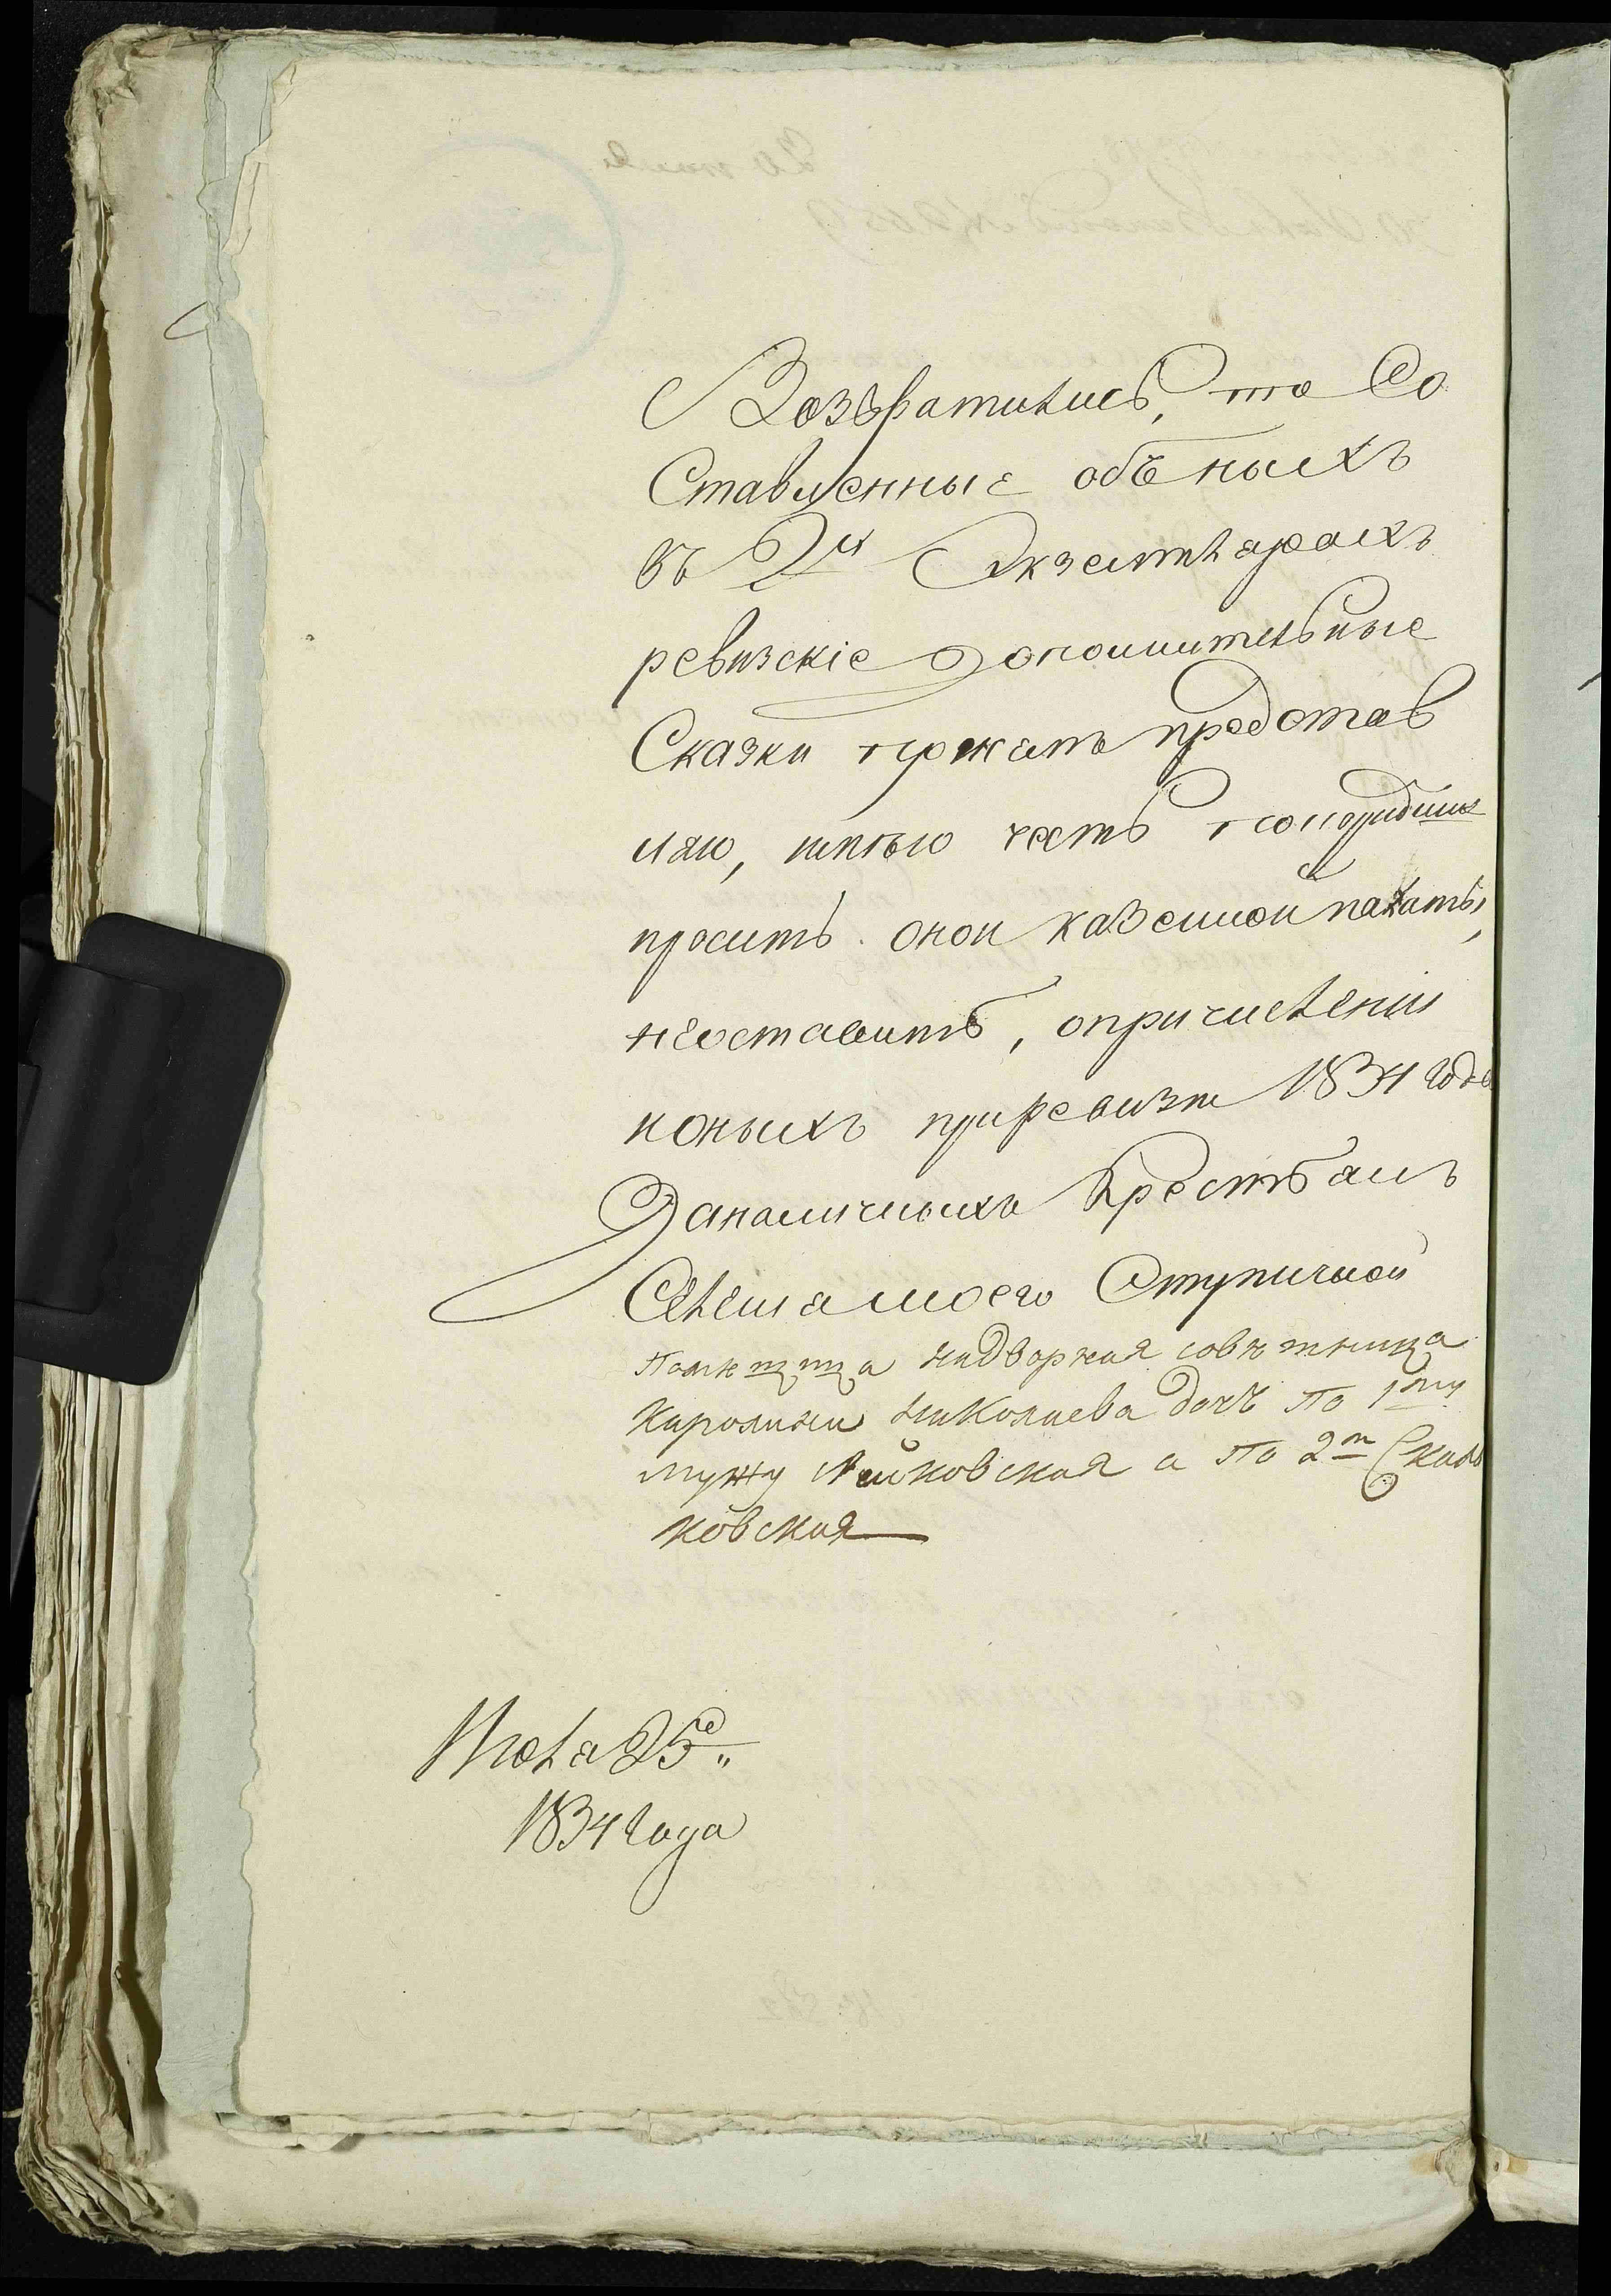 Возвратились, то Со
Ставленные объ ныхъ
въ 2х Экземплярахъ
ревизскіе дополнительные
Сказки присемъ представ
ляю, имѣю честь
просить оной казенной палаты,
неоставить, опричислении
коныхъ приревизии 1834 года
Заналичныхъ Крестьянъ
Селения моего Ступичной
Помещица надворная советница
Каролина Николаева дочь по 1му
мужу а по 2м Скаль
ковская
Июля 25го
1834 года